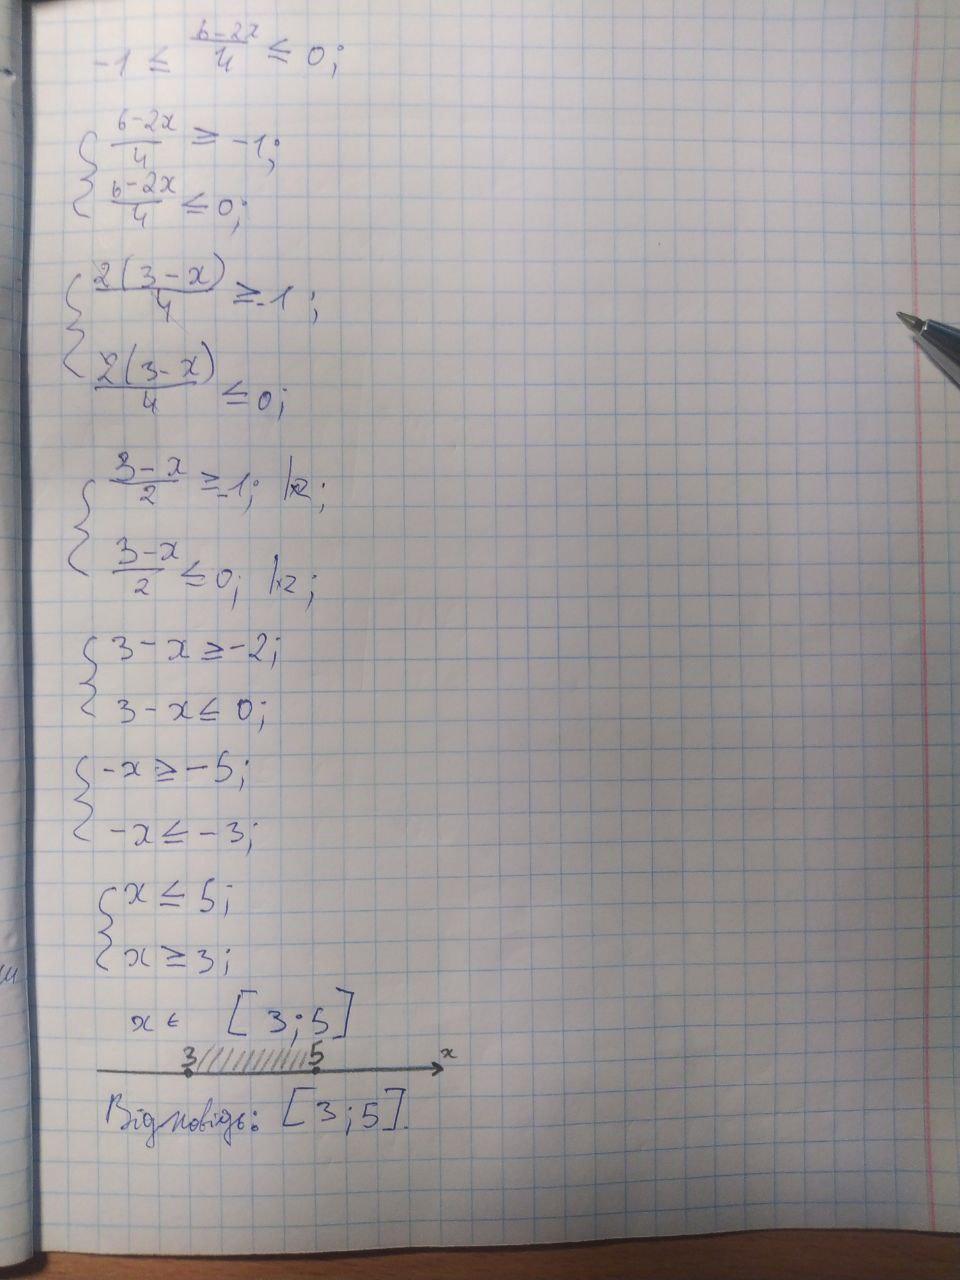 -1 ≤ (6-2x)/4 ≤ 0;
{ (6-2x)/4 ≥ -1;
(6-2x)/4 ≤ 0;
{ 2(3-x)/4 ≥ -1;
2(3-x)/4 ≤ 0;
{ (3-x)/2 ≥ -1; |×2;
(3-x)/2 ≤ 0; |×2;
{ 3-x ≥ -2;
3-x ≤ 0;
{ -x ≥ -5;
-x ≤ -3;
{ x ≤ 5;
x ≥ 3;
x ∈ [3;5]
3 5 x
Відповідь: [3;5].